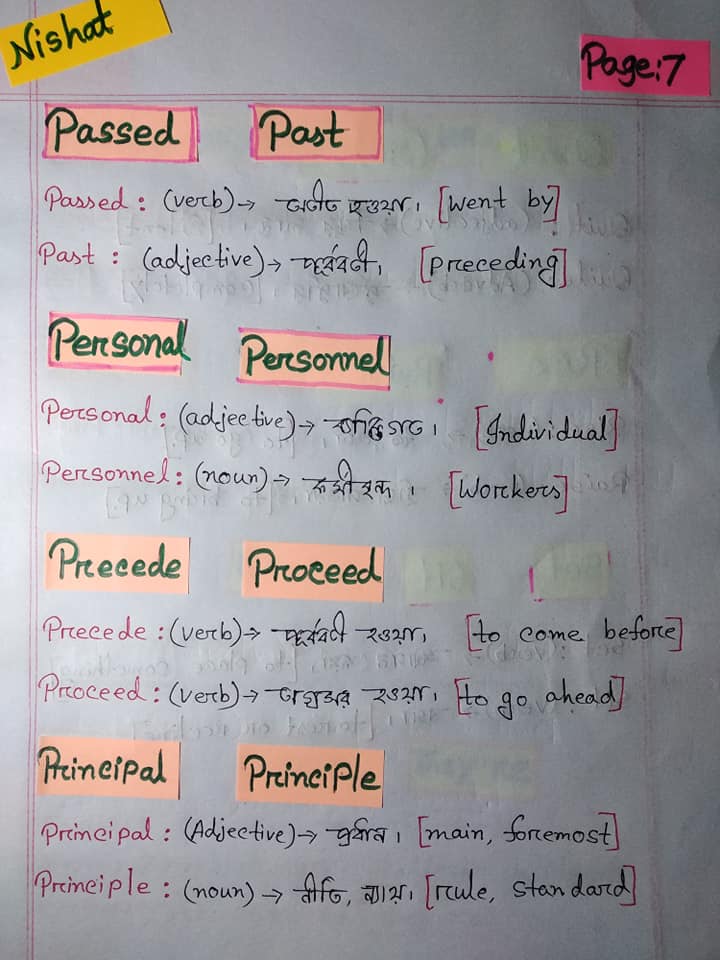 Nishat
Page:7
Passed Past
Passed : (verb) → অতীত হওয়া। [went by]
Past : (adjective) → পূর্ববর্তী। [preceding]
Personal Personnel
Personal : (adjective) → ব্যক্তিগত। [Individual]
Personnel : (noun) → কর্মীবৃন্দ। [Workers]
Precede Proceed
Precede : (verb) → পূর্ববর্তী হওয়া। [to come before]
Proceed : (verb) → অগ্রসর হওয়া। [to go ahead]
Principal Principle
Principal : (Adjective) → প্রধান। [main, foremost]
Principle : (noun) → নীতি, ন্যায়। [rule, standard]